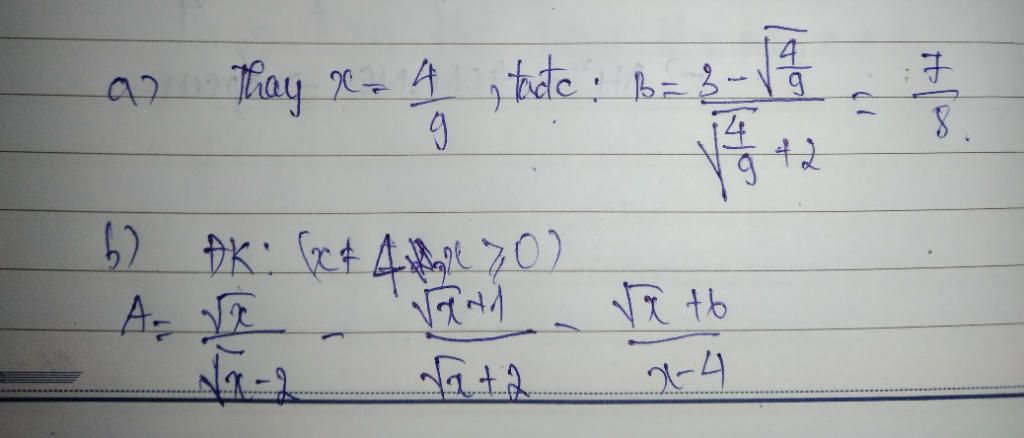 a) Thay x = 4/9, ta đc: B = (3 - √(4/9))/(√(4/9) + 2) = 7/8.
b) ĐK: (x ≠ 4, x ⩾ 0)
A = √x/(√x - 2) - (√x + 1)/(√x + 2) - (√x + 6)/(x - 4)